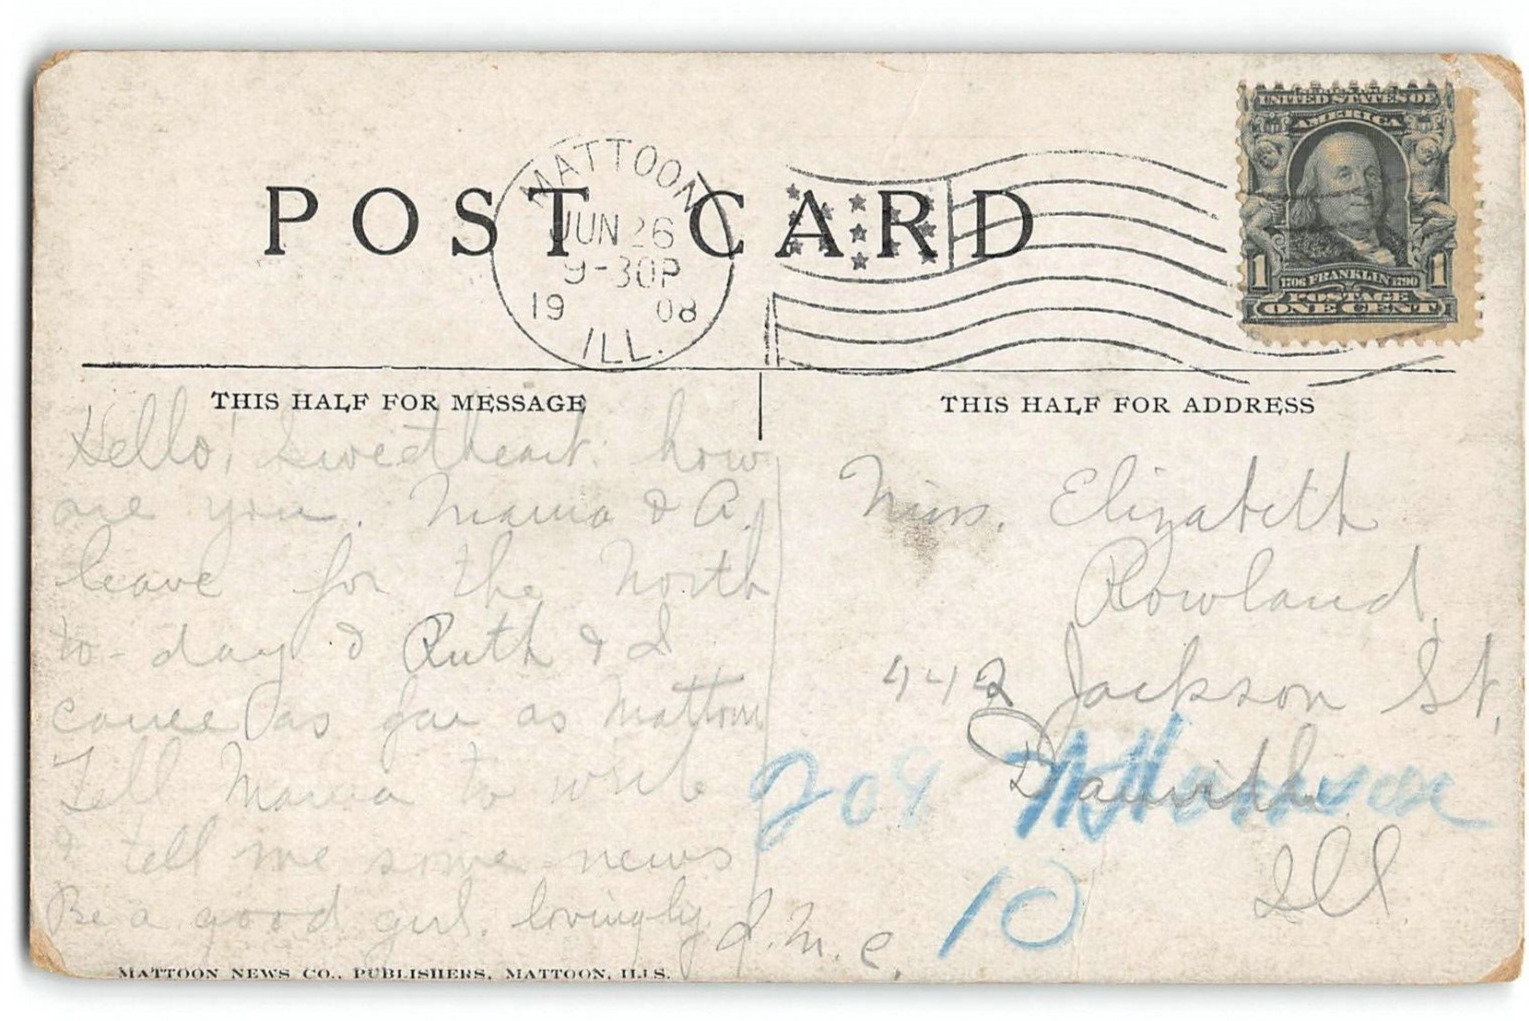 POST CARD
MATTOON
JUN 26
9-30P
19 08
ILL.
UNITED STATES OF
AMERICA
1 1706 FRANKLIN 1790 1
POSTAGE
ONE CENT
THIS HALF FOR MESSAGE
Hello! Sweetheart. how
are you. Mama & A.
leave for the North
to-day & Ruth & I
came as far as Mattoon
Tell Mama to write
& tell me some news
Be a good girl. lovingly
J. M. C.
MATTOON NEWS CO., PUBLISHERS, MATTOON, ILLS.
THIS HALF FOR ADDRESS
Miss. Elizabeth
Rowland,
442 Jackson St,
209
Ill.
10